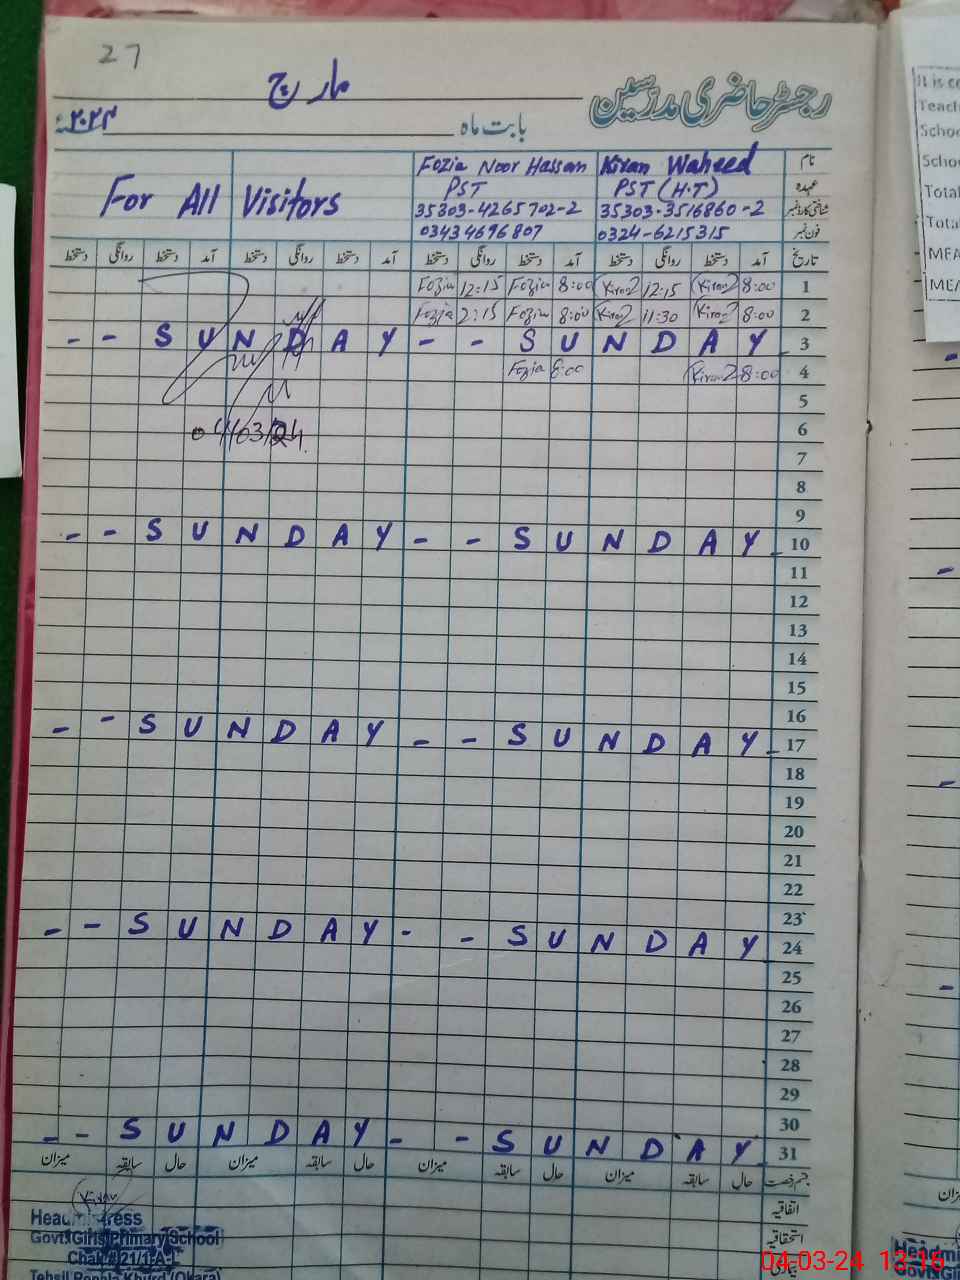 27
رجسٹر حاضری مدرسین
مارچ
بابت ماہ ۲۰۲۴ء
نام Kiran Waheed Fozia Noor Hassan
عہدہ PST (H.T) PST
For All Visitors
شناختی کارڈ نمبر 35303-3516860-2 35303-4265702-2
فون نمبر 0324-6215315 03434696807
تاریخ آمد دستخط روانگی دستخط آمد دستخط روانگی دستخط آمد دستخط روانگی دستخط آمد دستخط روانگی دستخط
Fozia 12:15 Fozia 8:00 Kiran 12:15 Kiran 8:00 1
Fozia 2:15 Fozia 8:00 Kiran 11:30 Kiran 8:00 2
- - S U N D A Y - - S U N D A Y 3
Fozia 8:00 Kiran 8:00 4
5
04/03/24 6
7
8
9
- - S U N D A Y - - S U N D A Y 10
11
12
13
14
15
16
- - S U N D A Y - - S U N D A Y 17
18
19
20
21
22
23
- - S U N D A Y - - S U N D A Y 24
25
26
27
28
29
30
- - S U N D A Y - - S U N D A Y 31
قسم رخصت حال سابقہ میزان حال سابقہ میزان حال سابقہ میزان حال سابقہ میزان
اتفاقیہ
استحقاقیہ
بیماری
Kiran
Headmistress
Govt. Girls Primary School
Chak # 21/1-A-L
Tehsil Renala Khurd (Okara)
It is ce
Teach
Schoo
Schoo
Total
Total
MEA
MEA
Headmis
Govt.Gi
04-03-24 13:16